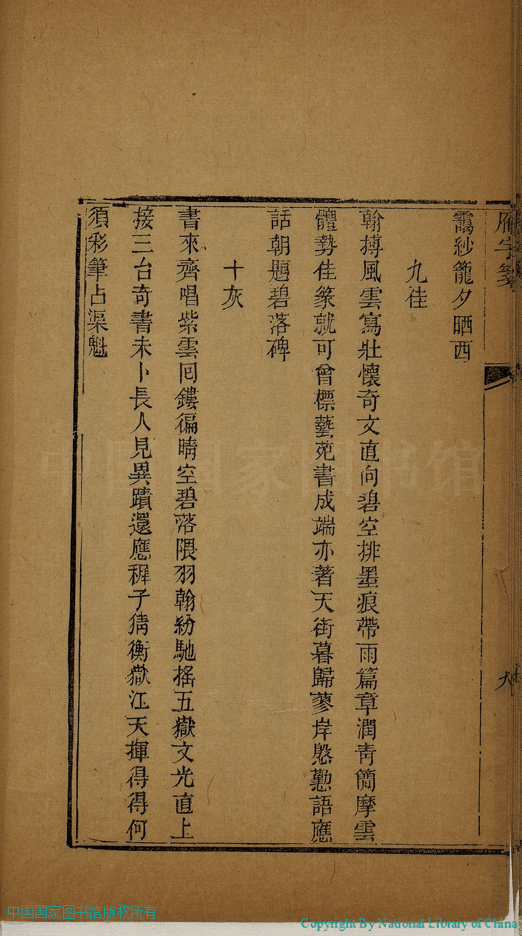 雁字箋
靄紗籠夕晒西
九佳
翰搏風雲寫壯懷奇文直向碧空排墨痕帶雨篇章潤靑簡摩雲
體勢佳篆就可曾標藝苑書成端亦著天街暮歸蓼岸慇懃語應
話朝題碧落碑
十灰
書來齊唱紫雲囘鏤徧晴空碧落隈羽翰紛馳搖五嶽文光直上
接三台奇書未卜長人見異蹟還應穉子猜衡嶽江天揮得得何
須彩筆占渠魁
中国国家图书馆
中国国家图书馆版权所有
Copyright By National Library of China